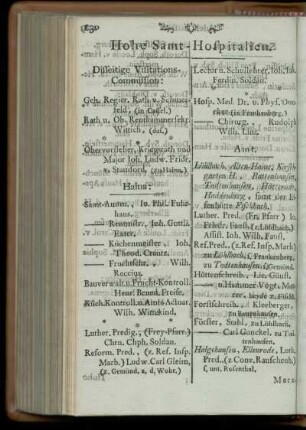 Hohe Samt-Hospitalien.
Disseitige Visitations-
Commission:
Geh. Regier. Rath v. Schmer-
feld, (in Cassel.)
Rath u. Ob. Rentkammersekr.
Wittich, (das.)
Obervorsteher, Kriegsrath und
Major Joh. Ludw. Fridr.
v. Stamford, (zu Haina.)
Haina:
Samt-Amtm., Jo. Phil. Fuhr-
hans.
Rentmstr., Joh. Gottl.
Küchenmeister, Joh.
Theod. Creutz.
Fruchtschr., Wilh.
Roccius.
Bauverwalt. u. Frucht-Kontroll.
Henr. Bernd. Freise.
Küch. Kontroll. u. Amts Actuar.
Wilh. Wittekind,
Luther. Predig., (Frey-Pfarr.)
Chrn. Chph. Soldan.
Reform. Pred., (z. Ref. Insp.
Marb.) Ludw. Carl Gleim,
(z. Gemünd. a. d. Wohr.)
Lector u. Schullehrer, Joh. Jak.
Ferdin. Soldan.
Hosp. Med. Dr. u. Phys.
(in Frankenberg.)
Chirurg., Rudolf
Wilh.
Amt.
Löhlbach, Alten-Haina, Kirsch-
garten H., Battenhausen,
Dodenhausen, Hüttenrode,
Haddenberg, samt der
Fischbach.
Luther. Pred., (Fr. Pfarr.) Jo.
Friedr. Faust, (z. Löhlbach.)
Assist. Joh. Wilh. Faust,
Ref. Pred., (z. Ref. Insp. Mark.)
zu Löhlbach, s. Frankenberg,
zu Dodenhausen, s. Gemünd.
Hüttenschreib., Lic. Giesst.
u. Hammer-Vögt.
Forstschreib., Kleeberger,
Förster, Stahl, zu Löhlbach.
Carl Gunckel, zu
Halgehausen, Ellnrode, Luth.
Pred., (z. Conv. Rauschenb.)
s. unt. Rosenthal.